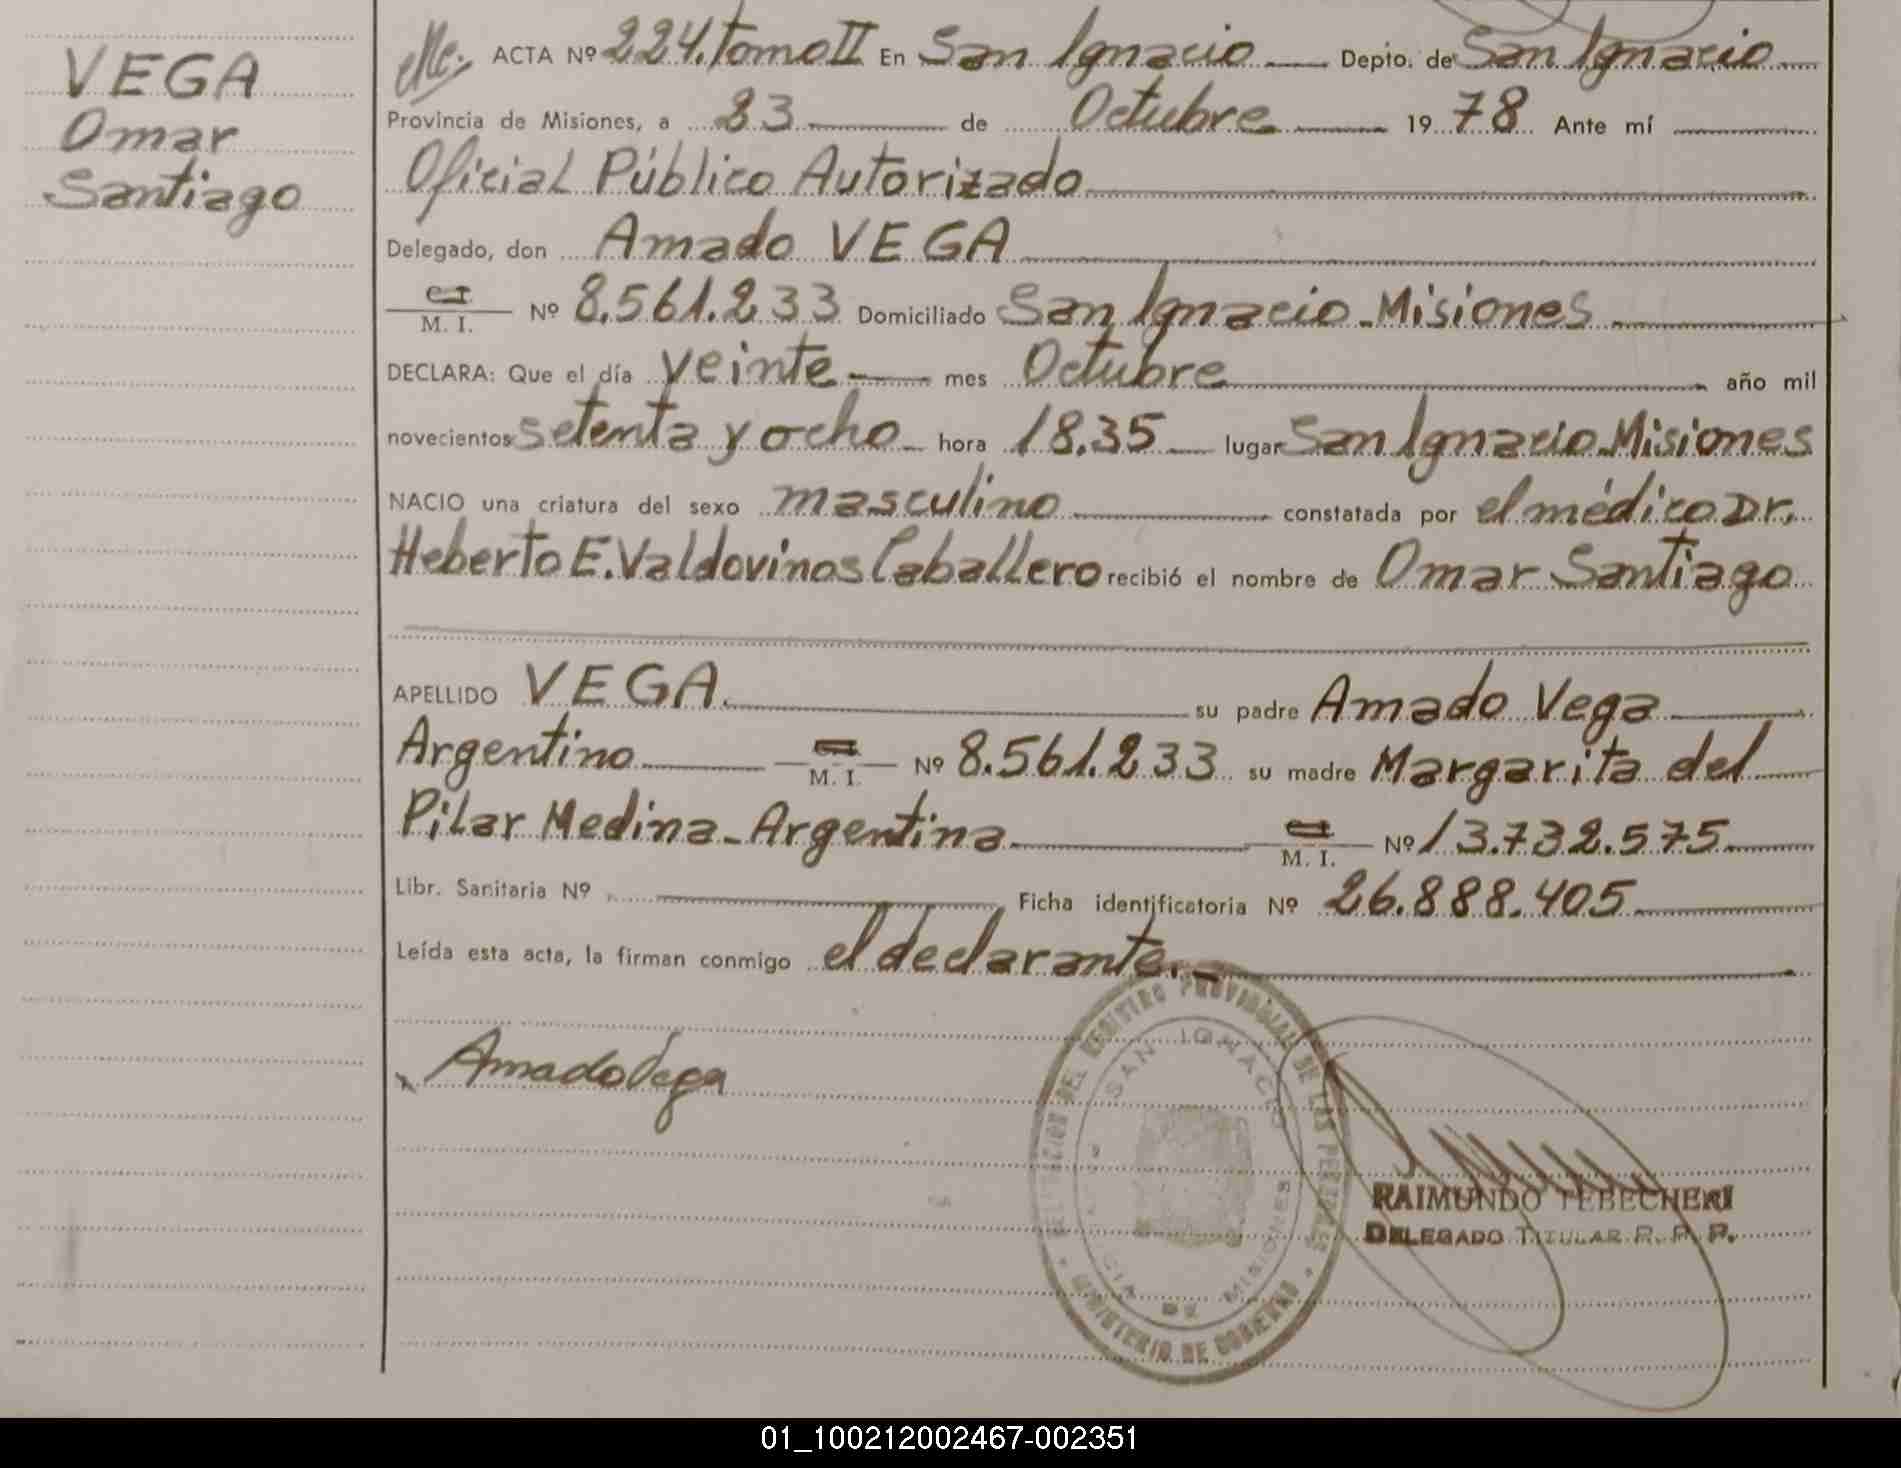 VEGA
Omar
Santiago
ACTA Nº 224. Tomo II En San Ignacio Depto. de San Ignacio
Provincia de Misiones, a 23 de Octubre 1978 Ante mí
Oficial Público Autorizado
Delegado, don Amado VEGA
M. I. Nº 8.561.233 Domiciliado San Ignacio - Misiones
DECLARA: Que el día veinte mes Octubre año mil
novecientos setenta y ocho hora 18.35 lugar San Ignacio. Misiones
NACIO una criatura del sexo masculino constatada por el médico Dr.
Heberto E. Valdovinos Caballero recibió el nombre de Omar Santiago
APELLIDO VEGA. su padre Amado Vega
Argentino M. I. Nº 8.561.233 su madre Margarita del
Pilar Medina - Argentina M. I. Nº 13.732.575
Libr. Sanitaria Nº Ficha identificatoria Nº 26.888.405
Leída esta acta, la firman conmigo el declarante.
Amado Vega
DELEGACION DEL REGISTRO PROVINCIAL DE LAS PERSONAS
SAN IGNACIO
DE MISIONES
MINISTERIO DE GOBIERNO
RAIMUNDO TEBECHERI
DELEGADO TITULAR R. P. P.
01_100212002467-002351